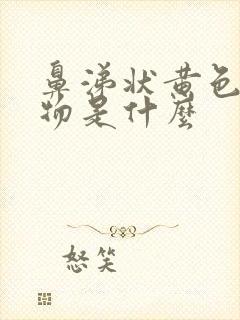 鼻涕状黄色
物是什麼
怒笑